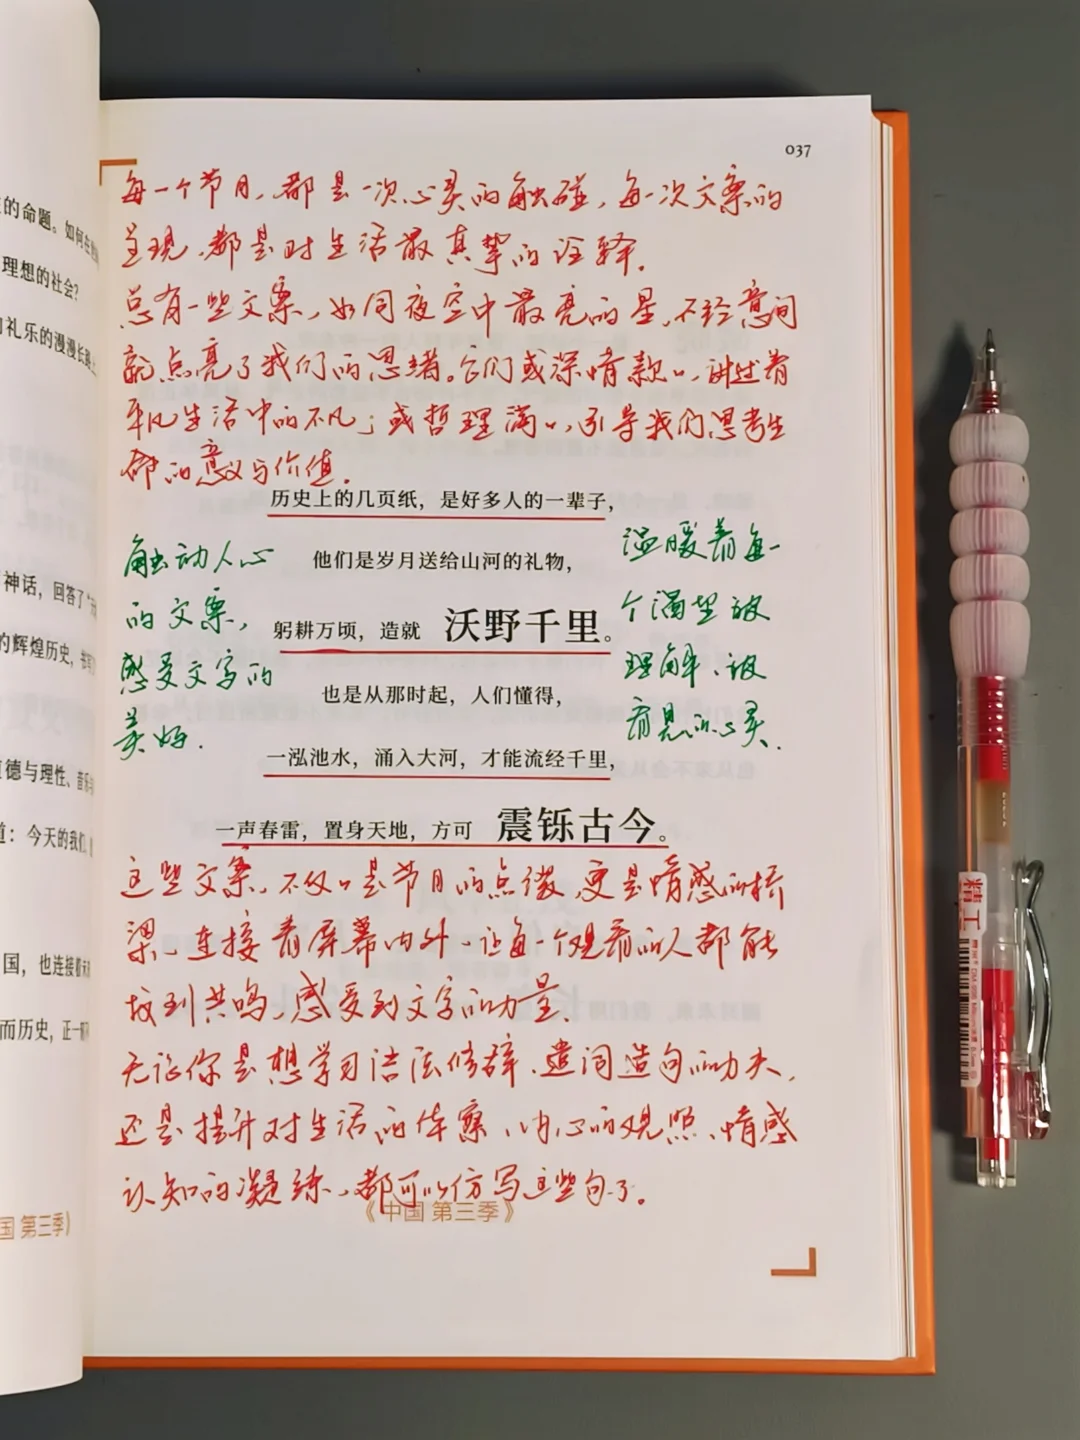 037
每一个节目，都是一次心灵的触碰，每一次文案的
呈现，都是对生活最真挚的诠释.
总有一些文案，如同夜空中最亮的星，不经意间
就点亮了我们的思绪。它们或深情款款，讲述着
平凡生活中的不凡；或哲理满满，引导我们思考生
命的意义与价值.
历史上的几页纸，是好多人的一辈子，
他们是岁月送给山河的礼物，
躬耕万顷，造就 沃野千里。
也是从那时起，人们懂得，
一泓池水，涌入大河，才能流经千里，
一声春雷，置身天地，方可 震铄古今。
触动人心
的文案，
感受文字的
美好.
温暖着每一
个渴望被
理解、被
看见的心灵.
这些文案，不仅仅是节目的点缀，更是情感的桥
梁，连接着屏幕内外，让每一个观看的人都能
找到共鸣，感受到文字的力量.
无论你是想学习语法修辞、遣词造句的功夫，
还是提升对生活的体察、内心的观照、情感
认知的凝练，都可以仿写这些句子。
《中国 第三季》
的命题。如何在
理想的社会？
礼乐的漫漫长路上
神话，回答了
的辉煌历史，
道德与理性、音乐
道：今天的我们，
国，也连接着
而历史，正一
国 第三季》
精工